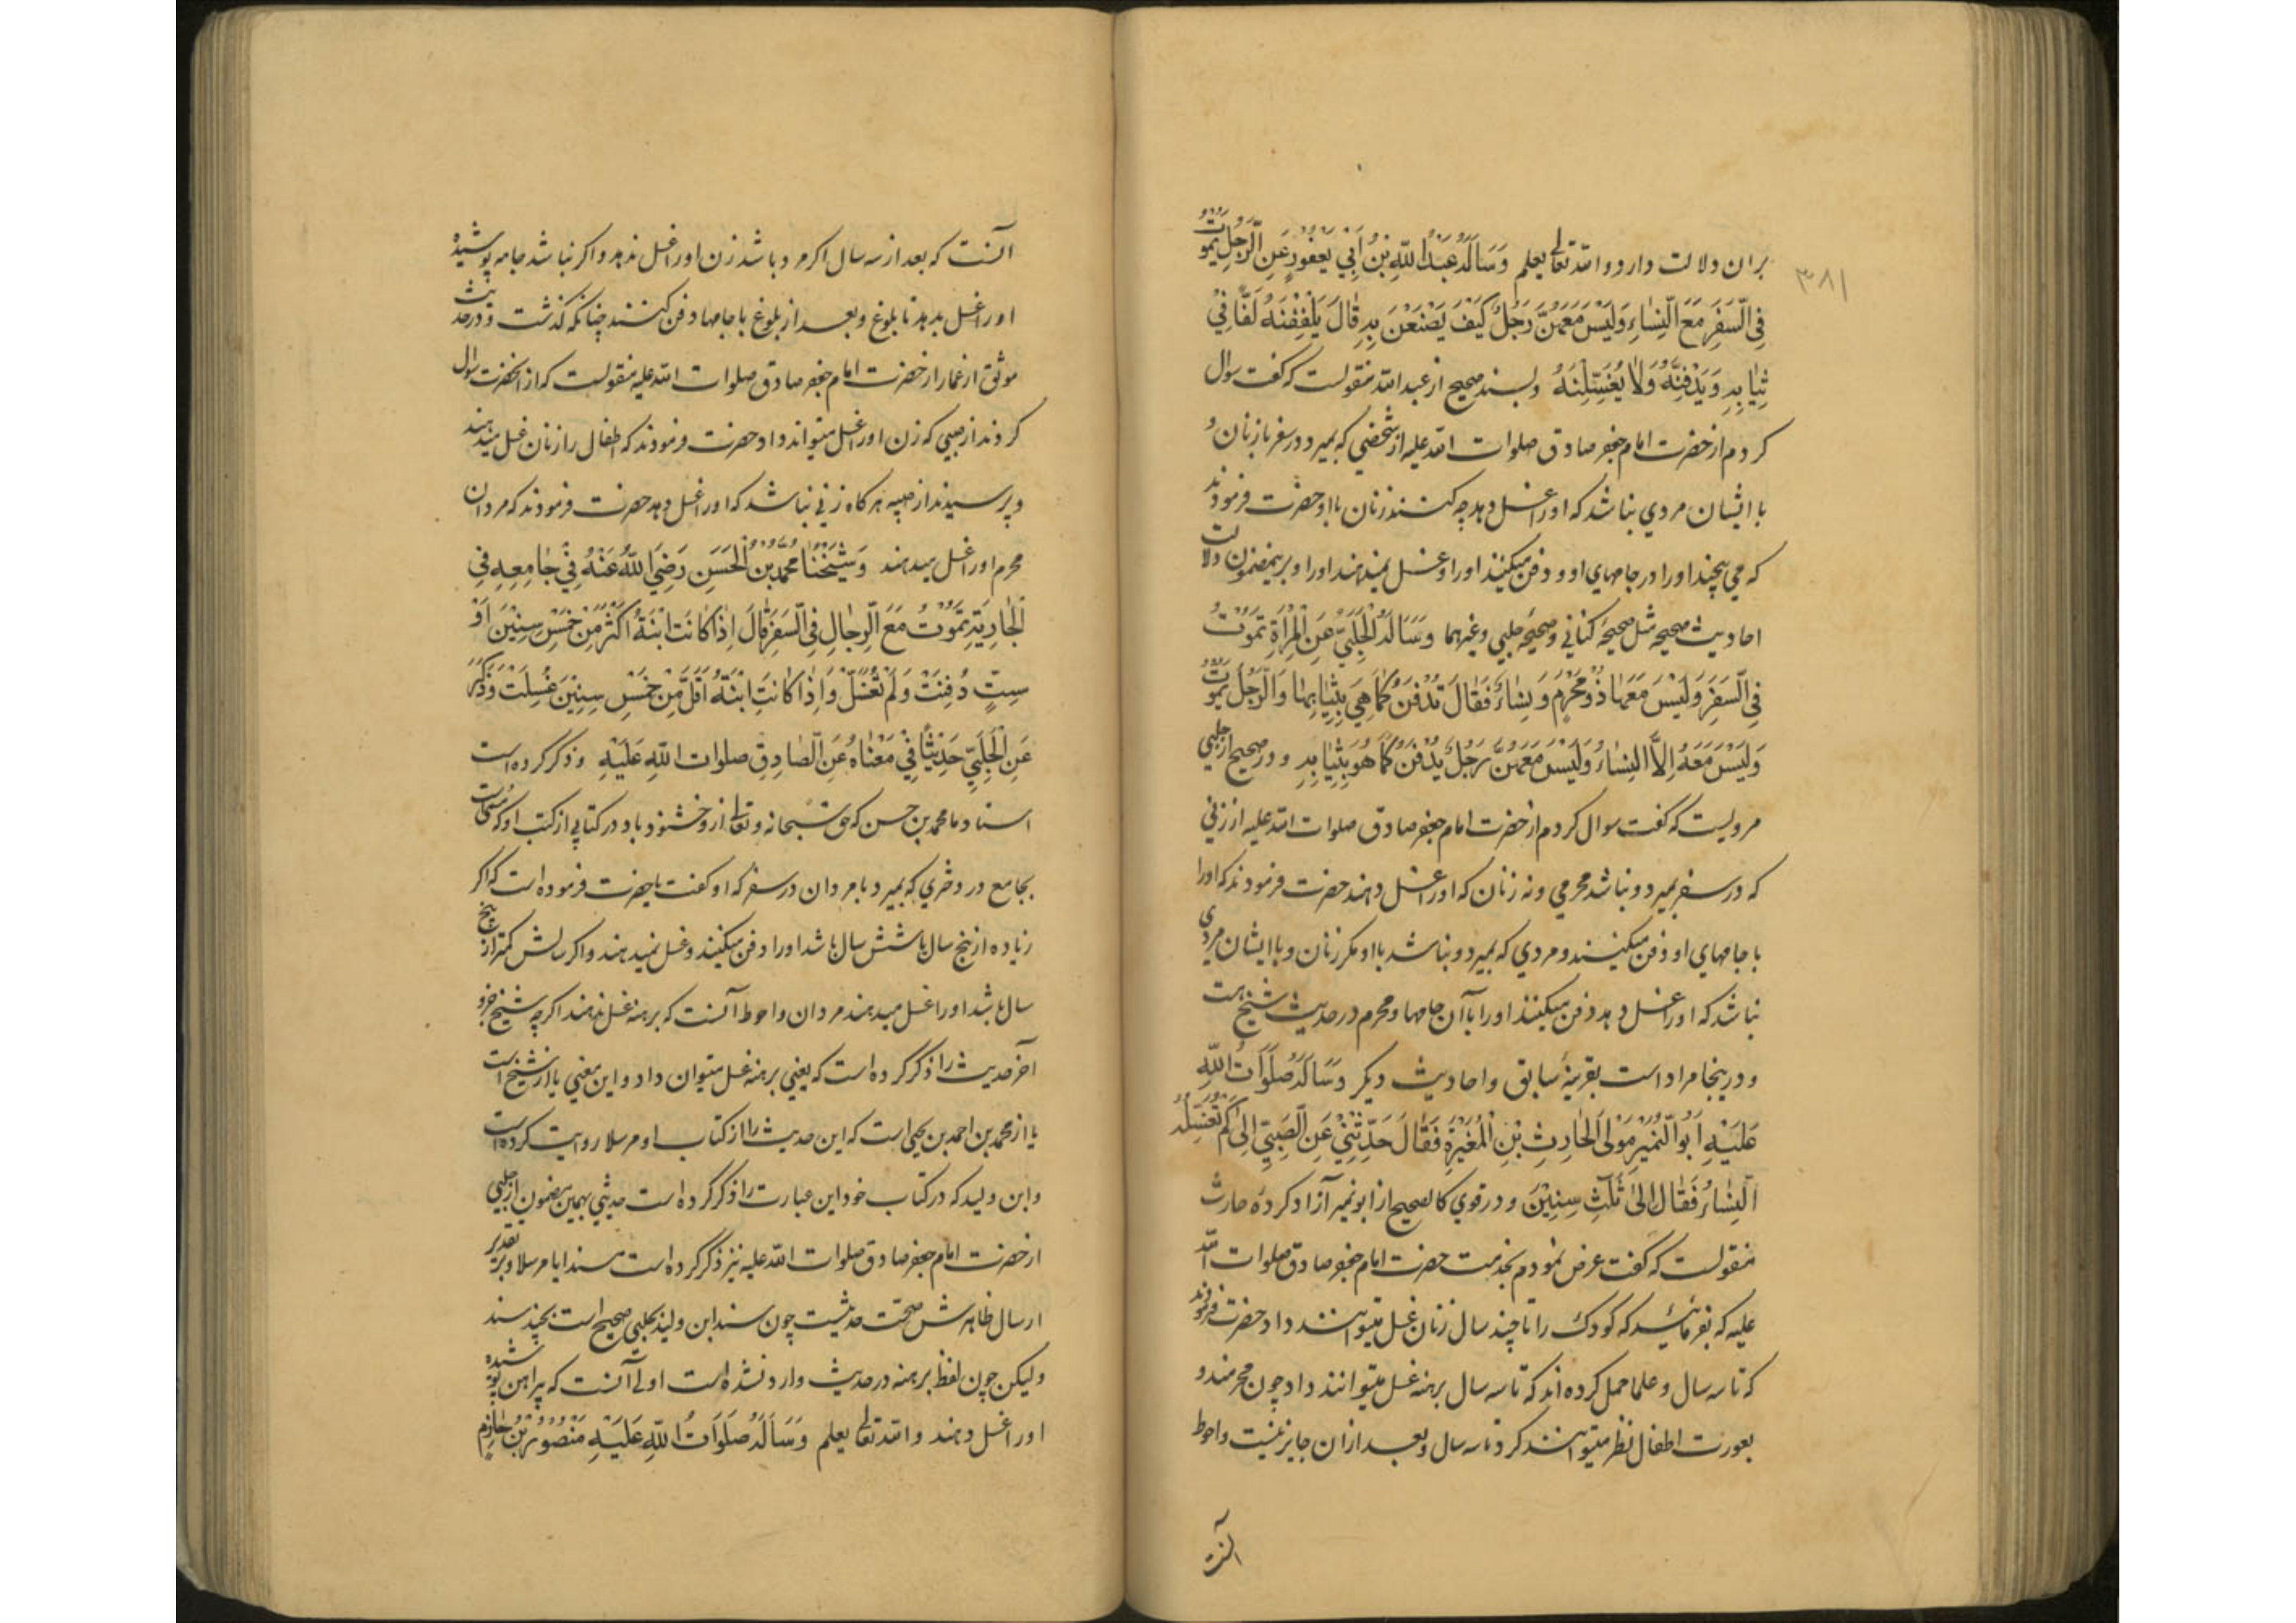 ۳۸۱
بران دلالت دارد و الله تعالی یعلم وَسَاَلَهُ عَبْدُ اللّٰهِ بْنُ اَبِي يَعْفُورٍ عَنِ الرَّجُلِ يَمُوتُ
فِي السَّفَرِ مَعَ النِّسَاءِ وَلَيْسَ مَعَهُنَّ رَجُلٌ كَيْفَ يَصْنَعْنَ بِهِ قَالَ يَلْفُفْنَهُ لَفًّا فِي
ثِيَابِهِ وَيَدْفِنَّهُ وَلَا يُغَسِّلْنَهُ وبسند صحیح از عبد الله منقولست که گفت سوال
کردم از حضرت امام جعفر صادق صلوات الله علیه از شخصی که بمیرد در سفر با زنان و
با ایشان مردي نباشد که او را غسل دهد چه کنند زنان با او حضرت فرمودند
که مي پیچند او را در جامهاي او و دفن میکنند او را و غسل نمیدهند او را و برینمضمون دلالت
احادیث صحیحه مثل صحیحۀ کناني و صحیحۀ حلبي وغیرهما وَسَاَلَهُ الْحَلَبِيُّ عَنِ الْمَرْاَةِ تَمُوتُ
فِي السَّفَرِ وَلَيْسَ مَعَهَا ذُو مَحْرَمٍ وَنِسَاءٌ فَقَالَ تُدْفَنُ كَمَا هِيَ بِثِيَابِهَا وَالرَّجُلُ يَمُوتُ
وَلَيْسَ مَعَهُ اِلَّا النِّسَاءُ وَلَيْسَ مَعَهُنَّ رَجُلٌ يُدْفَنُ كَمَا هُوَ بِثِيَابِهِ و در صحیح از حلبي
مرویست که گفت سوال کردم از حضرت امام جعفر صادق صلوات الله علیه از زني
که در سفر بمیرد و نباشد محرمي و نه زنان که او را غسل دهند حضرت فرمودند که او را
با جامهاي او دفن میکنند و مردي که بمیرد و نباشد با او مکر زنان و با ایشان مردي
نباشد که او را غسل دهد دفن میکنند او را با آن جامها و محرم در حدیث شیخ هست
و درینجا مراد است بقرینۀ سابق و احادیث دیکر وَسَاَلَهُ صَلَوَاتُ اللّٰهِ
عَلَيْهِ اَبُو النُّمَيْرِ مَوْلَى الْحَارِثِ بْنِ الْمُغَيْرَةِ فَقَالَ حَدِّثْنِي عَنِ الصَّبِيِّ اِلٰى كَمْ تُغَسِّلُهُ
النِّسَاءُ فَقَالَ اِلٰى ثَلٰثِ سِنِيْنَ و در قوي کالصحیح از ابو نمیر آزاد کردۀ حارث
منقولست که گفت عرض نمودم بخدمت حضرت امام جعفر صادق صلوات الله
علیه که بفرمائید که کودک را تا چند سال زنان غسل میتوانند داد حضرت فرمودند
که تا سه سال و علما حمل کرده اند که تا سه سال برهنه غسل میتوانند داد چون محرمند و
بعورت اطفال نظر میتوانند کرد تا سه سال و بعد از ان جایز نیست و احوط
آنست
آنست که بعد از سه سال اکر مرد باشد زن او را غسل ندهد و اکر نباشد جامه پوشیده
او را غسل بدهد تا بلوغ و بعد از بلوغ با جامها دفن کنند چنانکه کذشت و در حدیث
موثق از عمار از حضرت امام جعفر صادق صلوات الله علیه منقولست که از آنحضرت سوال
کردند از صبیي که زن او را غسل میتواند داد حضرت فرمودند که اطفال را زنان غسل میدهند
و پرسیدند از صبیه هرکاه زني نباشد که او را غسل دهد حضرت فرمودند که مردان
محرم او را غسل میدهند وَشَيْخُنَا مُحَمَّدُ بْنُ الْحَسَنِ رَضِيَ اللّٰهُ عَنْهُ فِي جَامِعِهِ فِي
الْجَارِيَةِ تَمُوتُ مَعَ الرِّجَالِ فِي السَّفَرِ قَالَ اِذَا كَانَتِ ابْنَةُ اَكْثَرَ مِنْ خَمْسِ سِنِيْنَ اَوْ
سِتٍّ دُفِنَتْ وَلَمْ تُغَسَّلْ وَاِذَا كَانَتِ ابْنَةُ اَقَلَّ مِنْ خَمْسِ سِنِيْنَ غُسِلَتْ وَذَكَرَ
عَنِ الْحَلَبِيِّ حَدِيْثًا فِي مَعْنَاهُ عَنِ الصَّادِقِ صلوات اللّٰهِ عَلَيْهِ و ذکر کرده است
استاد ما محمد بن حسن که حق سبحانه و تعالی ازو خشنود باد در کتابي از کتب او که مسمی است
بجامع در دختري که بمیرد با مردان در سفر که او کفت یا حضرت فرموده است که اکر
زیاده از پنج سال یا شش سال باشد او را دفن میکنند و غسل نمیدهند و اکر سالش کمتر از پنج
سال باشد او را غسل میدهند مردان و احوط آنست که برهنه غسل ندهند اکرچه شیخ جزو
آخر حدیث را ذکر کرده است که یعني برهنه غسل میتوان داد و این معني یا از شیخ است
یا از محمد بن احمد بن یحیی است که این حدیث را از کتاب او مرسلا روایت کرده است
و ابن ولید که در کتاب خود این عبارت را ذکر کرده است حدیثي بهمین مضمون از حلبي
از حضرت امام جعفر صادق صلوات الله علیه نیز ذکر کرده است مسندا یا مرسلا و بر تقدیر
ارسال ظاهرش صحت حدیثست چون سند ابن ولید بحلبي صحیح است بچند سند
ولیکن چون لفظ برهنه در حدیث وارد نشده است اولی آنست که پیراهن پوشیده
او را غسل دهند و الله تعالی یعلم وَسَاَلَهُ صَلَوَاتُ اللّٰهِ عَلَيْهِ مَنْصُورُ بْنُ حَازِمٍ